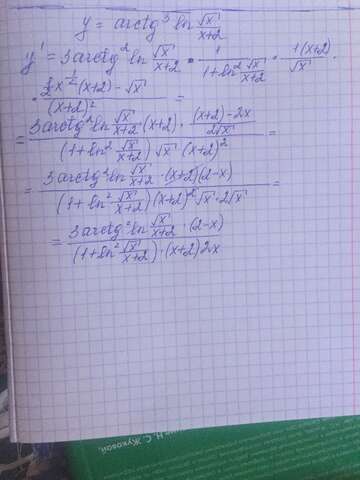 y = arctg³ ln √x / x+2
y' = 3arctg² ln √x / x+2 · 1 / 1+ln² √x / x+2 · 1(x+2) / √x ·
· ½x^-½(x+2) - √x / (x+2)² =
= 3arctg² ln √x / x+2 (x+2) · (x+2)-2x / 2√x / (1+ln² √x / x+2) √x · (x+2)² =
= 3arctg² ln √x / x+2 · (x+2)(2-x) / (1+ln² √x / x+2)(x+2)² √x · 2√x =
= 3arctg² ln √x / x+2 · (2-x) / (1+ln² √x / x+2) · (x+2)2x
Н. С. Жуковой.